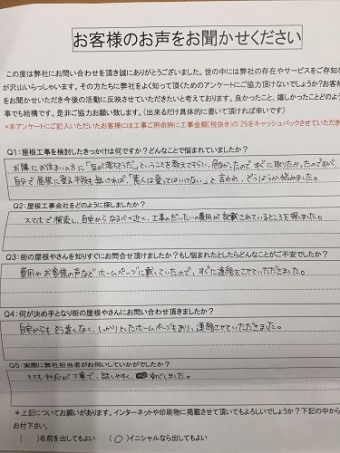 お客様のお声をお聞かせください
この度は弊社にお問い合わせを頂き誠にありがとうございます。世の中には弊社の存在やサービスをご存知
が沢山いらっしゃいます。その方たちに弊社をよく知って頂くためのアンケートにご協力頂けないでしょうか?お客様
をお聞かせいただき今後の活動に反映させていただきたいと考えております。良かったこと、嬉しかったことどのよう
事でも結構です。是非ご協力お願い致します。(出来るだけ具体的に書いて頂けると嬉しいです)
*本アンケートにご記入いただいたお客様には工事ご用命時に工事金額(税抜き)の2%をキャッシュバックさせていただき
Q1:屋根工事を検討したきっかけは何ですか?どんなことで悩まれていましたか?
お隣にお住まいの方に「瓦が落ちそうだ」ということを教えてもらい、
自分で屋根に登る手段も無ければ、「素人は登ってはいけない」と言われ、どうしようか悩みました。
Q2:屋根工事会社をどのように探しましたか?
スマホで検索し、自宅からなるべく近く、工事のだいたいの費用が記載されているところを探しました。
Q3:街の屋根やさんを知りすぐにお問合せ頂けましたか?もし悩まれたとしたらどんなことがご不安でしたか?
費用やお客様の声などホームページに載っていたので、すぐに連絡をさせていただきました。
Q4:何が決め手となり街の屋根やさんにお問い合わせ頂きましたか?
自宅からも約遠くなく、しっかりとしたホームページもあり、連絡させていただきました。
Q5:実際に弊社担当者がお伺いしていかがでしたか?
とても対応が丁寧で、話しやすく、安心しました。
*上記についてお願いがあります。インターネットや印刷物に掲載させて頂いてもよろしいでしょうか?下記の中から
お付下さい。
( )名前を出してもよい (○)イニシャルなら出してもよい